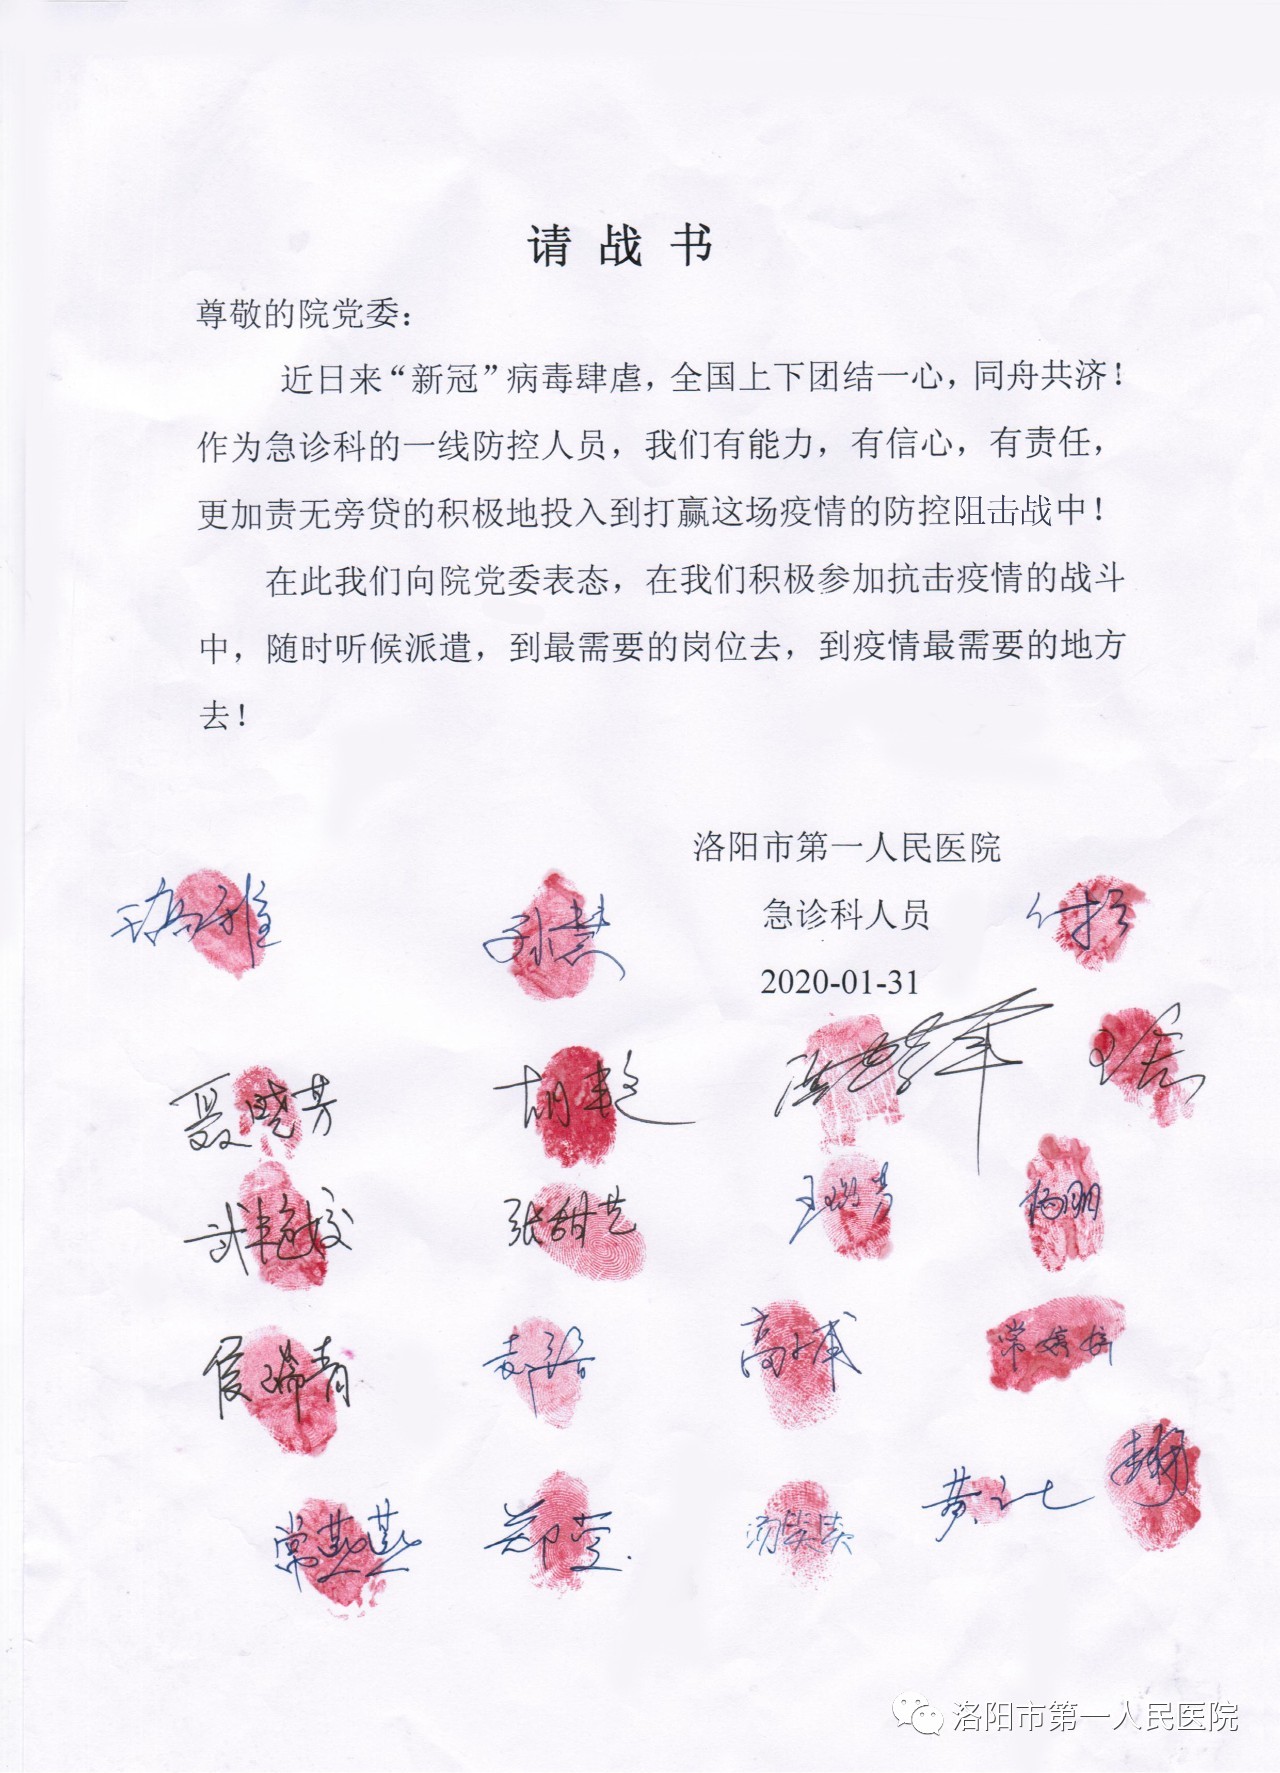 请战书
尊敬的院党委：
近日来“新冠”病毒肆虐，全国上下团结一心，同舟共济！
作为急诊科的一线防控人员，我们有能力，有信心，有责任，
更加责无旁贷的积极地投入到打赢这场疫情的防控阻击战中！
在此我们向院党委表态，在我们积极参加抗击疫情的战斗
中，随时听候派遣，到最需要的岗位去，到疫情最需要的地方
去！
洛阳市第一人民医院
急诊科人员
2020-01-31
孙慧
聂晓芳 胡艳
武艳姣 张甜艺 杨明
侯瑞青 常婷婷
常燕燕 郑莹
洛阳市第一人民医院